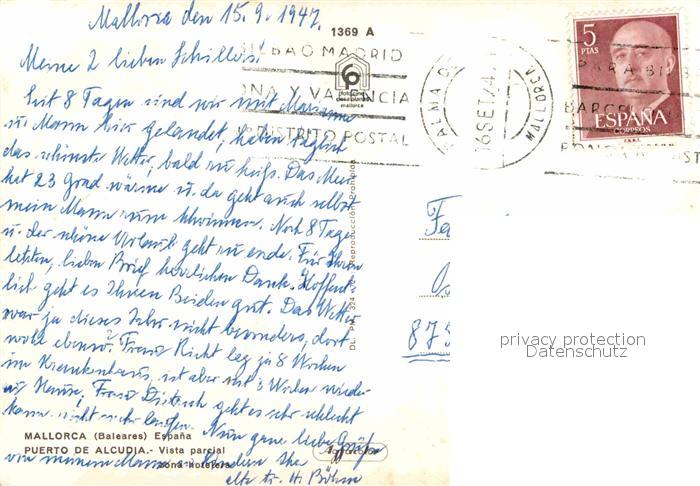 Mallorca den 15.9.1947.
1369 A
Meine 2 lieben Schillers!
BILBAO MADRID
ONA Y VALENCIA
DISTRITO POSTAL
PALMA DE MALLORCA
16 SET. 74
5
PTAS
ESPAÑA
CORREOS
PARA BIL
BARCEL
Seit 8 Tagen sind wir mit Marianne
u. Mann hier gelandet, haben täglich
das schönste Wetter, bald zu heiß. Das Meer
hat 23 Grad wärme u. da geht auch selbst
mein Mann zum schwimmen. Noch 8 Tage
u. der schöne Urlaub geht zu ende. Für Ihren
letzten, lieben Brief herzlichen Dank. Hoffent-
lich geht es Ihnen Beiden gut. Das Wetter
war ja dieses Jahr nicht besonders, dort
wohl ebenso? Frau Richt lag ja 8 Wochen
im Krankenhaus, ist aber seit 3 Wochen wieder
zu Hause, Frau Dietrich geht es sehr schlecht
kann nicht mehr laufen. Nun ganz liebe Grüße
von meinem Mann u. Kindern Ihre
alte tr. H. Böhm
Fa
875
DL. PM. 324
Reproducción Prohibida
MALLORCA (Baleares) España
PUERTO DE ALCUDIA.- Vista parcial
zona hotelera
privacy protection
Datenschutz